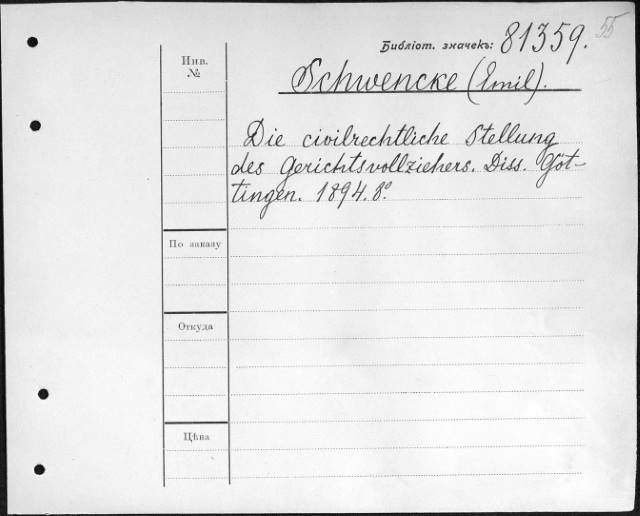 55
Библіот. значекъ: 81359.
Инв. №
Schwencke (Emil).
Die civilrechtliche Stellung
des Gerichtsvollziehers. Diss. Göt-
tingen. 1894. 8º.
По заказу
Откуда
Цѣна